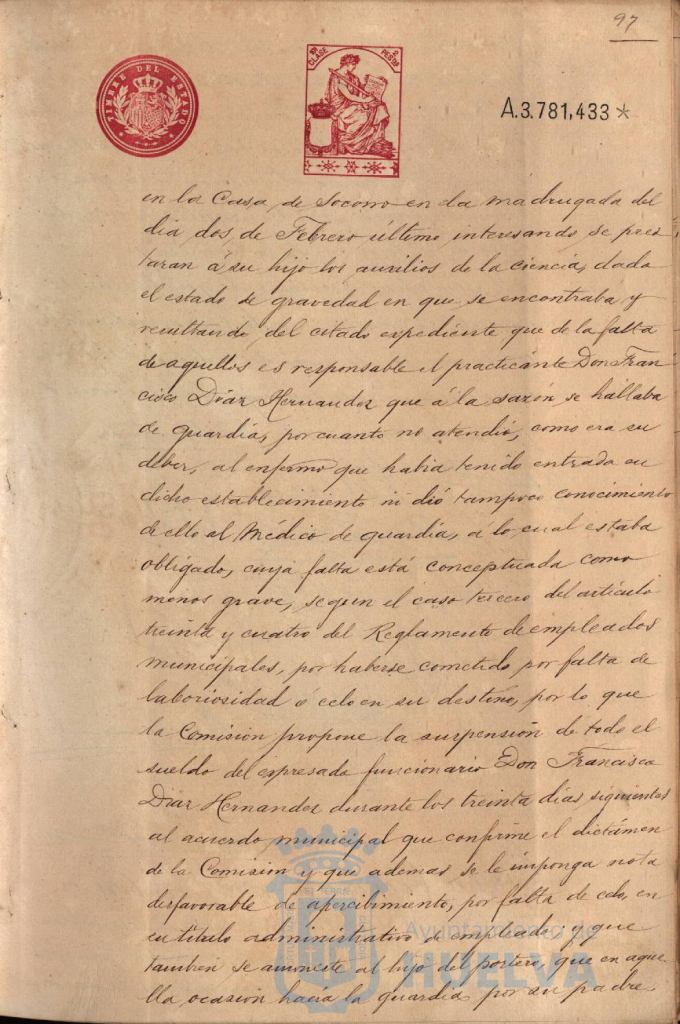 97
TIMBRE DEL ESTADO
10ª CLASE 2 PESTAS
A.3.781,433 *
en la Casa de Socorro en la madrugada del
dia dos de Febrero último interesando se pres
taran á su hijo los auxilios de la ciencia, dado
el estado de gravedad en que se encontraba y
resultando del citado expediente que de la falta
de aquellos es responsable el practicante Don Fran
cisco Diaz Hernandez que á la sazón se hallaba
de guardia, por cuanto no atendió, como era su
deber, al enfermo que habia tenido entrada en
dicho establecimiento ni dió tampoco conocimiento
de ello al Médico de guardia, a lo cual estaba
obligado, cuya falta está conceptuada como
menos grave, segun el caso tercero del artículo
treinta y cuatro del Reglamento de empleados
municipales, por haberse cometido por falta de
laboriosidad ó celo en su destino, por lo que
la Comision propone la suspensión de todo el
sueldo del expresado funcionario Don Francisco
Diaz Hernandez durante los treinta días siguientes
al acuerdo municipal que confirme el dictámen
de la Comision y que ademas se le imponga nota
desfavorable de apercibimiento, por falta de celo, en
su título administrativo de empleado y que
tambien se amoneste al hijo del portero, que en aque
lla ocasion hacia la guardia por su padre.
Ayuntamiento de
HUELVA